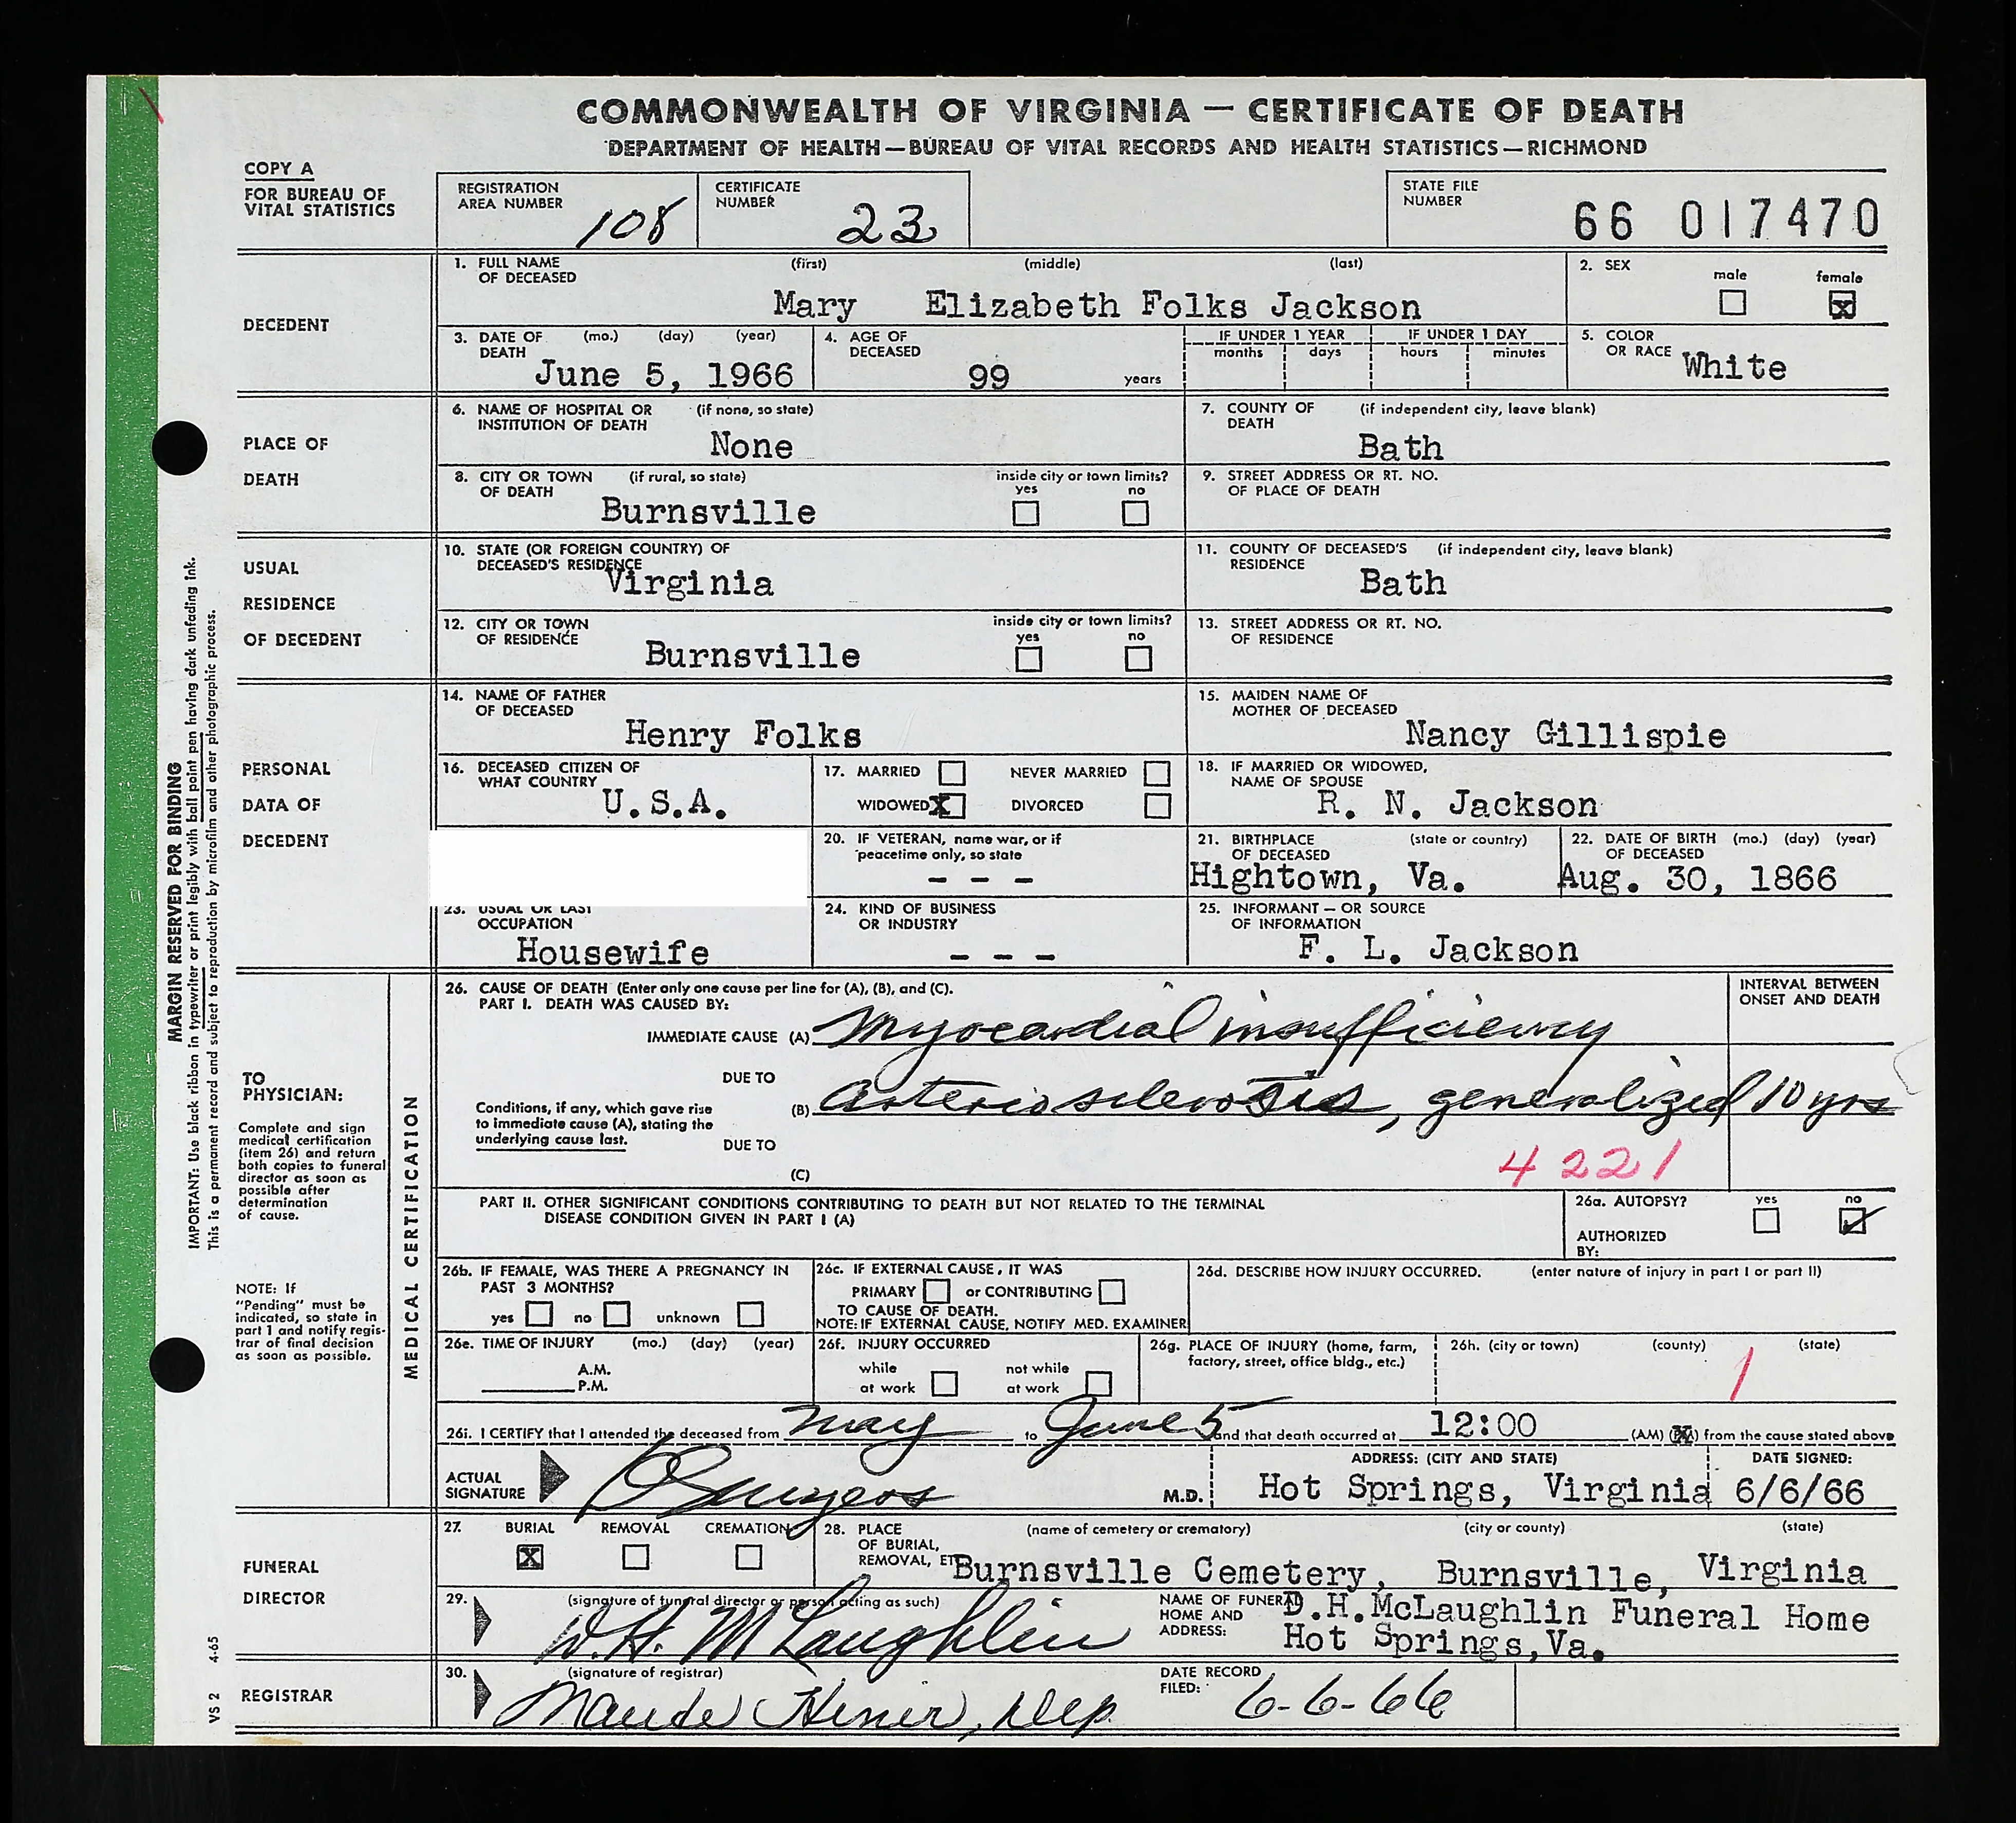 COMMONWEALTH OF VIRGINIA — CERTIFICATE OF DEATH
DEPARTMENT OF HEALTH—BUREAU OF VITAL RECORDS AND HEALTH STATISTICS—RICHMOND
COPY A
FOR BUREAU OF
VITAL STATISTICS
REGISTRATION
AREA NUMBER 108
CERTIFICATE
NUMBER 23
STATE FILE
NUMBER 66 017470
DECEDENT
1. FULL NAME (first) (middle) (last)
OF DECEASED
Mary Elizabeth Folks Jackson
2. SEX male female
x
3. DATE OF (mo.) (day) (year)
DEATH
June 5, 1966
4. AGE OF
DECEASED
99 years
IF UNDER 1 YEAR
months days
IF UNDER 1 DAY
hours minutes
5. COLOR
OR RACE White
PLACE OF
DEATH
6. NAME OF HOSPITAL OR (if none, so state)
INSTITUTION OF DEATH
None
7. COUNTY OF (if independent city, leave blank)
DEATH
Bath
8. CITY OR TOWN (if rural, so state) inside city or town limits?
OF DEATH yes no
Burnsville
9. STREET ADDRESS OR RT. NO.
OF PLACE OF DEATH
USUAL
RESIDENCE
OF DECEDENT
10. STATE (OR FOREIGN COUNTRY) OF
DECEASED'S RESIDENCE
Virginia
11. COUNTY OF DECEASED'S (if independent city, leave blank)
RESIDENCE
Bath
12. CITY OR TOWN inside city or town limits?
OF RESIDENCE yes no
Burnsville
13. STREET ADDRESS OR RT. NO.
OF RESIDENCE
PERSONAL
DATA OF
DECEDENT
14. NAME OF FATHER
OF DECEASED
Henry Folks
15. MAIDEN NAME OF
MOTHER OF DECEASED
Nancy Gillispie
16. DECEASED CITIZEN OF
WHAT COUNTRY
U.S.A.
17. MARRIED NEVER MARRIED
WIDOWED X DIVORCED
18. IF MARRIED OR WIDOWED,
NAME OF SPOUSE
R. N. Jackson
20. IF VETERAN, name war, or if
peacetime only, so state
- - -
21. BIRTHPLACE (state or country)
OF DECEASED
Hightown, Va.
22. DATE OF BIRTH (mo.) (day) (year)
OF DECEASED
Aug. 30, 1866
23. USUAL OR LAST
OCCUPATION
Housewife
24. KIND OF BUSINESS
OR INDUSTRY
- - -
25. INFORMANT — OR SOURCE
OF INFORMATION
F. L. Jackson
MARGIN RESERVED FOR BINDING
IMPORTANT: Use black ribbon in typewriter or print legibly with ball point pen having dark unfading ink.
This is a permanent record and subject to reproduction by microfilm and other photographic process.
VS 2 4-65
TO
PHYSICIAN:
Complete and sign
medical certification
(item 26) and return
both copies to funeral
director as soon as
possible after
determination
of cause.
NOTE: If
"Pending" must be
indicated, so state in
part 1 and notify regis-
trar of final decision
as soon as possible.
MEDICAL CERTIFICATION
26. CAUSE OF DEATH (Enter only one cause per line for (A), (B), and (C).
PART I. DEATH WAS CAUSED BY:
INTERVAL BETWEEN
ONSET AND DEATH
IMMEDIATE CAUSE (A) Myocardial insufficiency
DUE TO
Conditions, if any, which gave rise
to immediate cause (A), stating the
underlying cause last.
(B) arteriosclerosis, generalized 10 yrs
DUE TO
(C)
4221
PART II. OTHER SIGNIFICANT CONDITIONS CONTRIBUTING TO DEATH BUT NOT RELATED TO THE TERMINAL
DISEASE CONDITION GIVEN IN PART I (A)
26a. AUTOPSY? yes no
AUTHORIZED
BY:
26b. IF FEMALE, WAS THERE A PREGNANCY IN
PAST 3 MONTHS?
yes no unknown
26c. IF EXTERNAL CAUSE, IT WAS
PRIMARY or CONTRIBUTING
TO CAUSE OF DEATH.
NOTE: IF EXTERNAL CAUSE, NOTIFY MED. EXAMINER
26d. DESCRIBE HOW INJURY OCCURRED. (enter nature of injury in part I or part II)
26e. TIME OF INJURY (mo.) (day) (year)
A.M.
P.M.
26f. INJURY OCCURRED
while not while
at work at work
26g. PLACE OF INJURY (home, farm,
factory, street, office bldg., etc.)
26h. (city or town) (county) (state)
1
26i. I CERTIFY that I attended the deceased from May to June 5 and that death occurred at 12:00 (AM) (PM) from the cause stated above
ACTUAL
SIGNATURE
M.D.
ADDRESS: (CITY AND STATE)
Hot Springs, Virginia
DATE SIGNED:
6/6/66
FUNERAL
DIRECTOR
27. BURIAL REMOVAL CREMATION
X
28. PLACE (name of cemetery or crematory) (city or county) (state)
OF BURIAL,
REMOVAL, ETC.
Burnsville Cemetery, Burnsville, Virginia
29. (signature of funeral director or person acting as such)
D. H. McLaughlin
NAME OF FUNERAL
HOME AND
ADDRESS:
D.H.McLaughlin Funeral Home
Hot Springs,Va.
REGISTRAR
30. (signature of registrar)
Maude Hiner, Dep.
DATE RECORD
FILED: 6-6-66